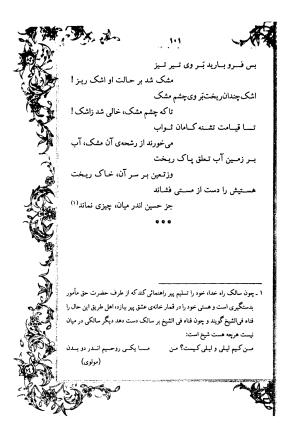 ۱۰۱
بس فرو بارید بَر وی تیر تیز
مشک شد بر حالت او اشک ریز !
اشک چندان ریخت بَر وی چشم مشک
تا که چشم مشک، خالی شد زاشک !
تا قیامت تشنه کامان ثواب
می‌خورند از رشحه‌ی آن مشک، آب
بر زمین آب تعلق پاک ریخت
وز تعین بر سر آن، خاک ریخت
هستیش را دست از مستی فشاند
جز حسین اندر میان، چیزی نماند (۱)
***
۱ ـ چون سالک راه خدا، خود را تسلیم پیر راهنمائی کند که از طرف حضرت حق مأمور
بدستگیری است و هستی خود را در قمار خانه‌ی عشق پیر بیازد، اهل طریق این حال را
فناء فی‌الشیخ گویند و چون فناء فی الشیخ بر سالک دست دهد دیگر سالکی در میان
نیست هر چه هست شیخ است:
من کیم لیلی و لیلی کیست؟ من ما یکی روحیم اندر دو بدن
(مولوی)